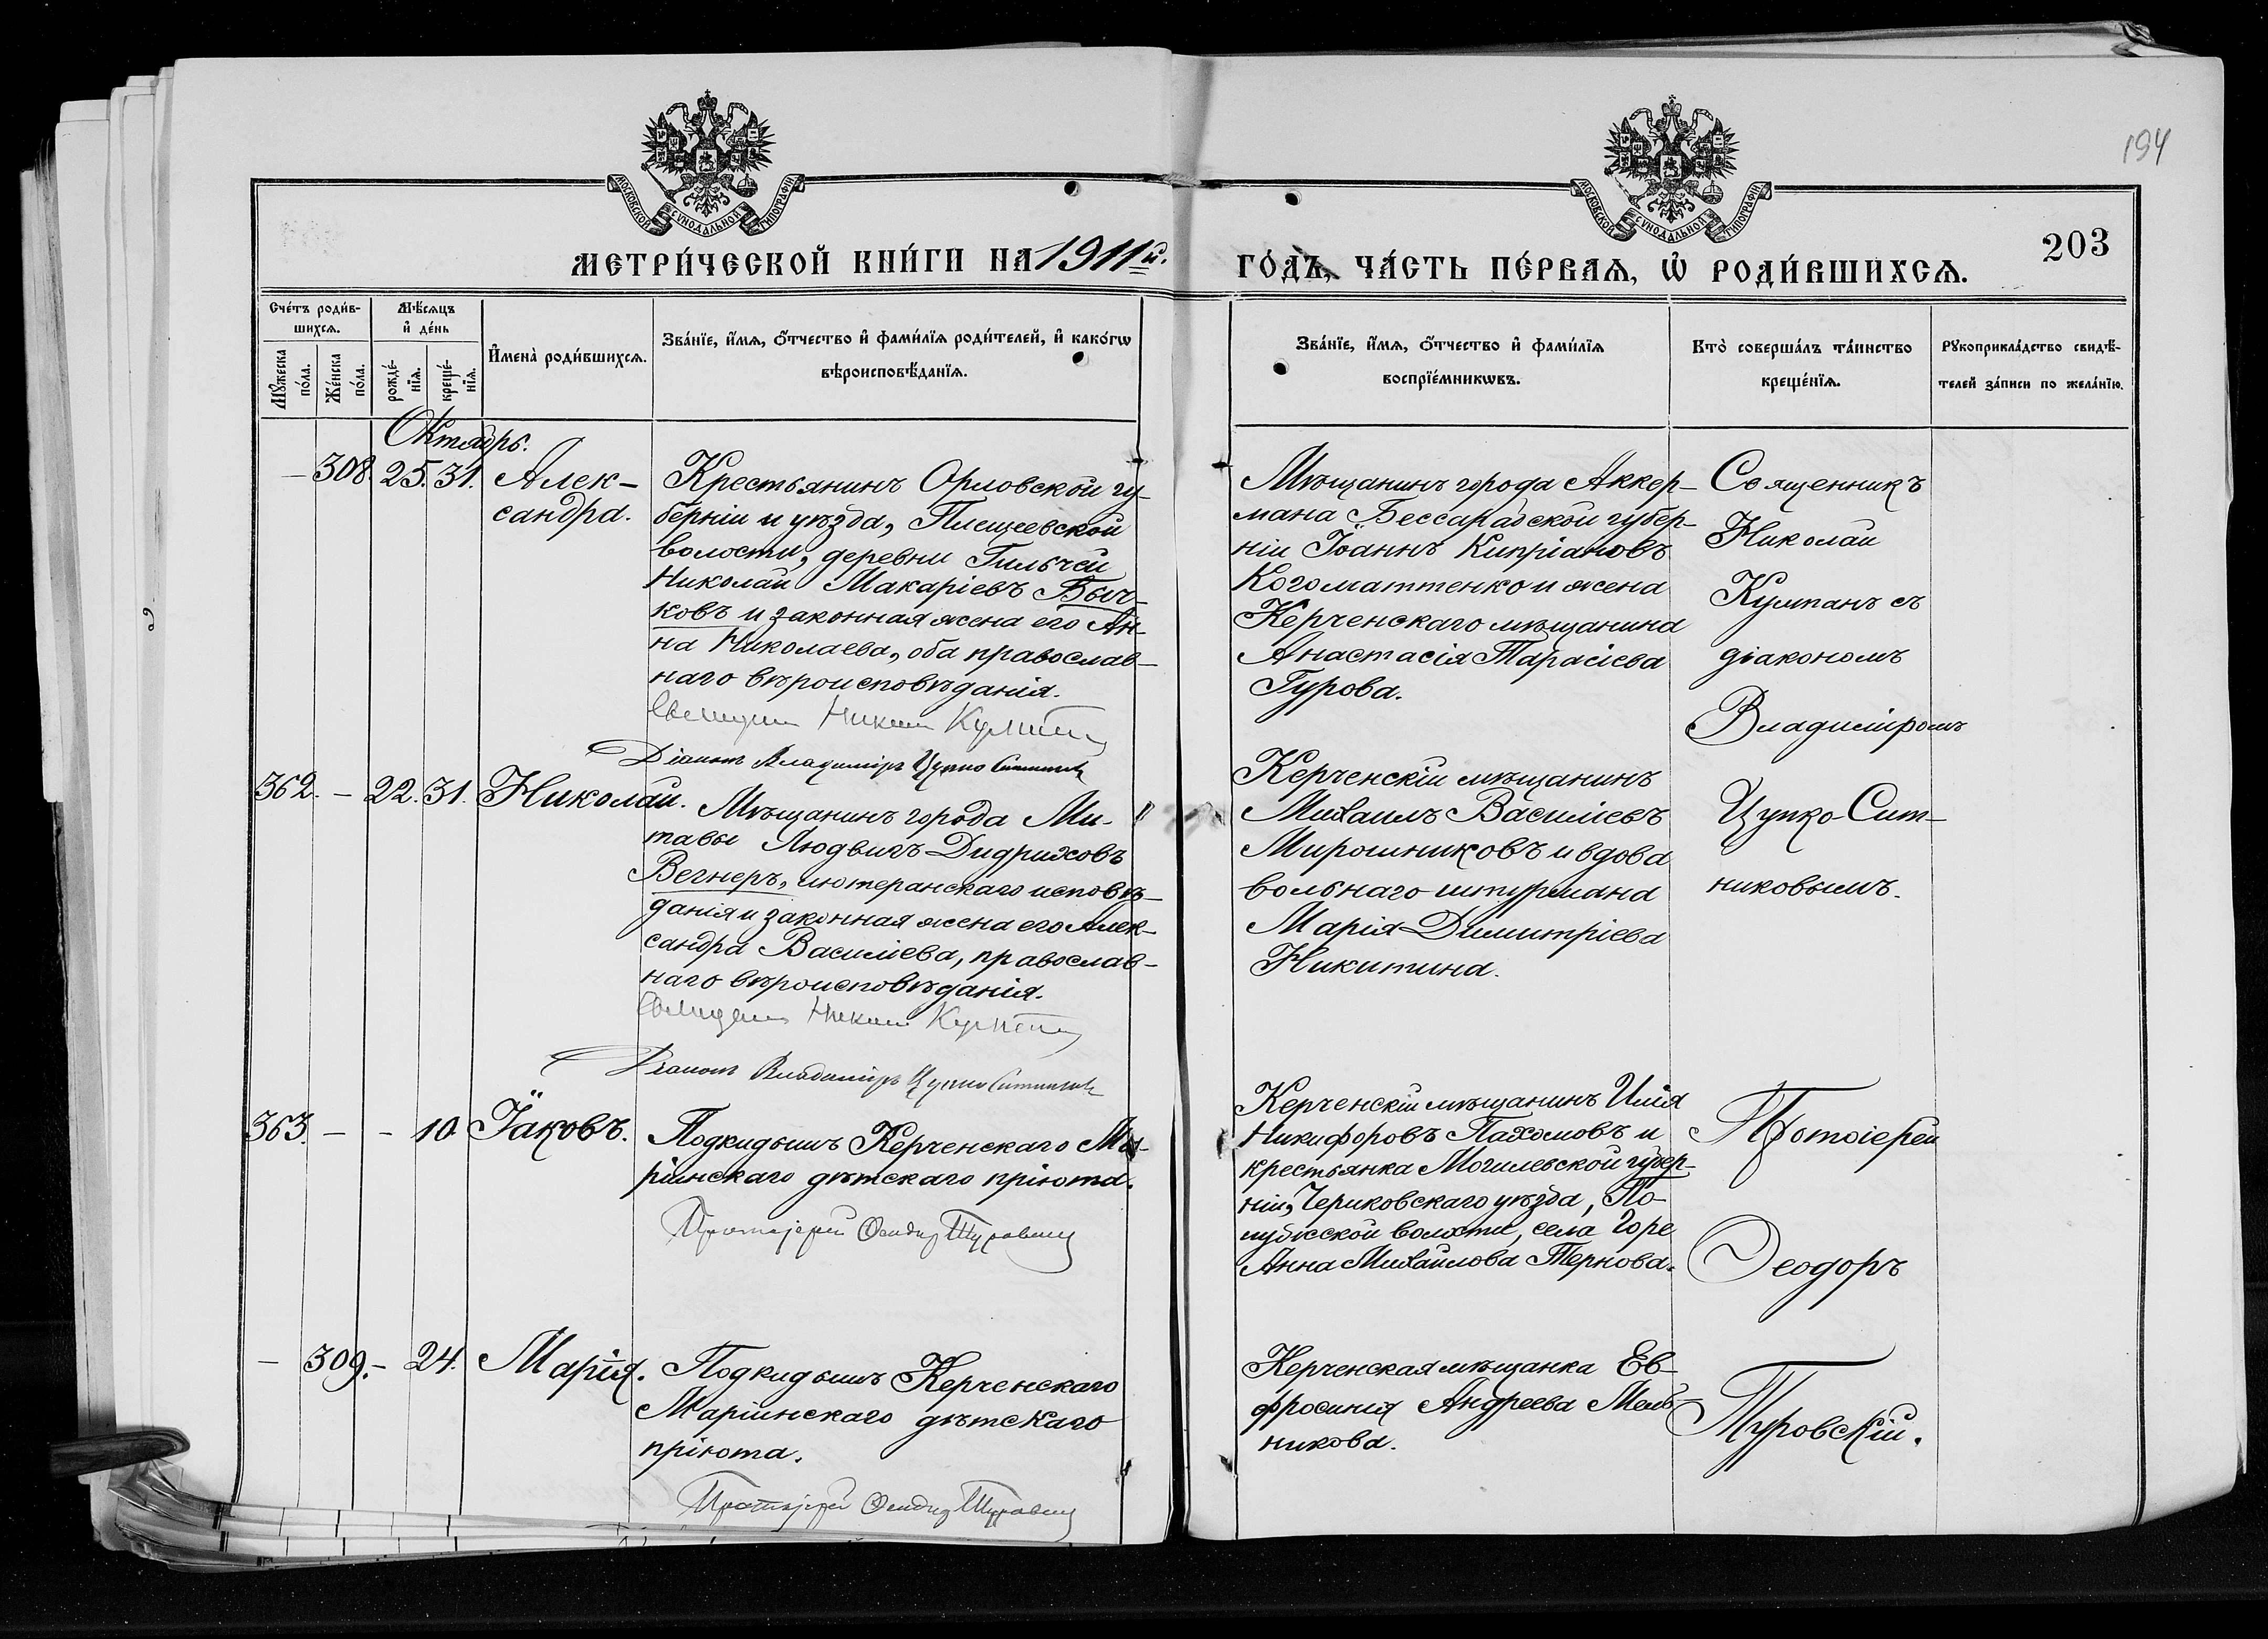 194
МОСКОВСКОЙ СѴНОДАЛЬНОЙ ТИПОГРАФІИ
МОСКОВСКОЙ СѴНОДАЛЬНОЙ ТИПОГРАФІИ
203
МЕТРИ́ЧЕСКОЙ КНИ́ГИ НА 1911й.
ГО́ДЪ, ЧА́СТЬ ПЕ́РВАѦ, Ѡ҆ РОДИ́ВШИХСѦ.
Сче́тъ роди́в-
шихсѧ.
Мѣ́сѧцъ
и҆ де́нь
Мꙋ́жеска
по́ла.
Же́нска
по́ла.
рожде́-
нїѧ.
креще́-
нїѧ.
И҆мена̀ роди́вшихсѧ.
Зва́нїе, и҆́мѧ, о҆́тчество и҆ фами́лїѧ роди́телей, и҆ како́гѡ
вѣроисповѣ́данїѧ.
Зва́нїе, и҆́мѧ, о҆́тчество и҆ фами́лїѧ
воспрїе́мникѡвъ.
Кто̀ соверша́лъ та́инство
креще́нїѧ.
Рꙋкоприкла́дство свидѣ́-
телей за́писи по жела́нїю.
Октябрь.
— 308. 25. 31. Алек-
сандра.
Крестьянинъ Орловской гу-
берніи и уѣзда, Плещеевской
волости, деревни Гильчей
Николай Макаріевъ Быч-
ковъ и законная жена его Ан-
на Николаева, оба православ-
наго вѣроисповѣданія.
Священникъ Николай Кумпанъ
Діаконъ Владиміръ Цупко-Ситниковъ
Мѣщанинъ города Аккер-
мана Бессарабской губер-
ніи Іоаннъ Кипріановъ
Когоматтенко и жена
Керченскаго мѣщанина
Анастасія Тарасіева
Гурова.
Священникъ
Николай
Кумпанъ съ
діакономъ
Владиміромъ
Цупко-Сит-
никовымъ.
362. — 22. 31. Николай.
Мѣщанинъ города Ми-
тавы Людвигъ Дидриховъ
Вегнеръ, лютеранскаго исповѣ-
данія и законная жена его Алек-
сандра Василіева, православ-
наго вѣроисповѣданія.
Священникъ Николай Кумпанъ
Діаконъ Владиміръ Цупко-Ситниковъ
Керченскій мѣщанинъ
Михаилъ Василіевъ
Мирошниковъ и вдова
вольнаго штурмана
Марія Димитріева
Никитина.
363. — — 10 Іаковъ.
Подкидышъ Керченскаго Ма-
ріинскаго дѣтскаго пріюта.
Протоіерей Ѳеодоръ Туровскій
Керченскій мѣщанинъ Илія
Никифоровъ Пахомовъ и
крестьянка Могилевской губер-
ніи, Чериковскаго уѣзда,
волости, села Горе
Анна Михайлова Тернова.
Протоіерей
Ѳеодоръ
Туровскій.
— 309. — 24. Марія.
Подкидышъ Керченскаго
Маріинскаго дѣтскаго
пріюта.
Протоіерей Ѳеодоръ Туровскій
Керченская мѣщанка Ев-
фросинія Андреева Мель-
никова.